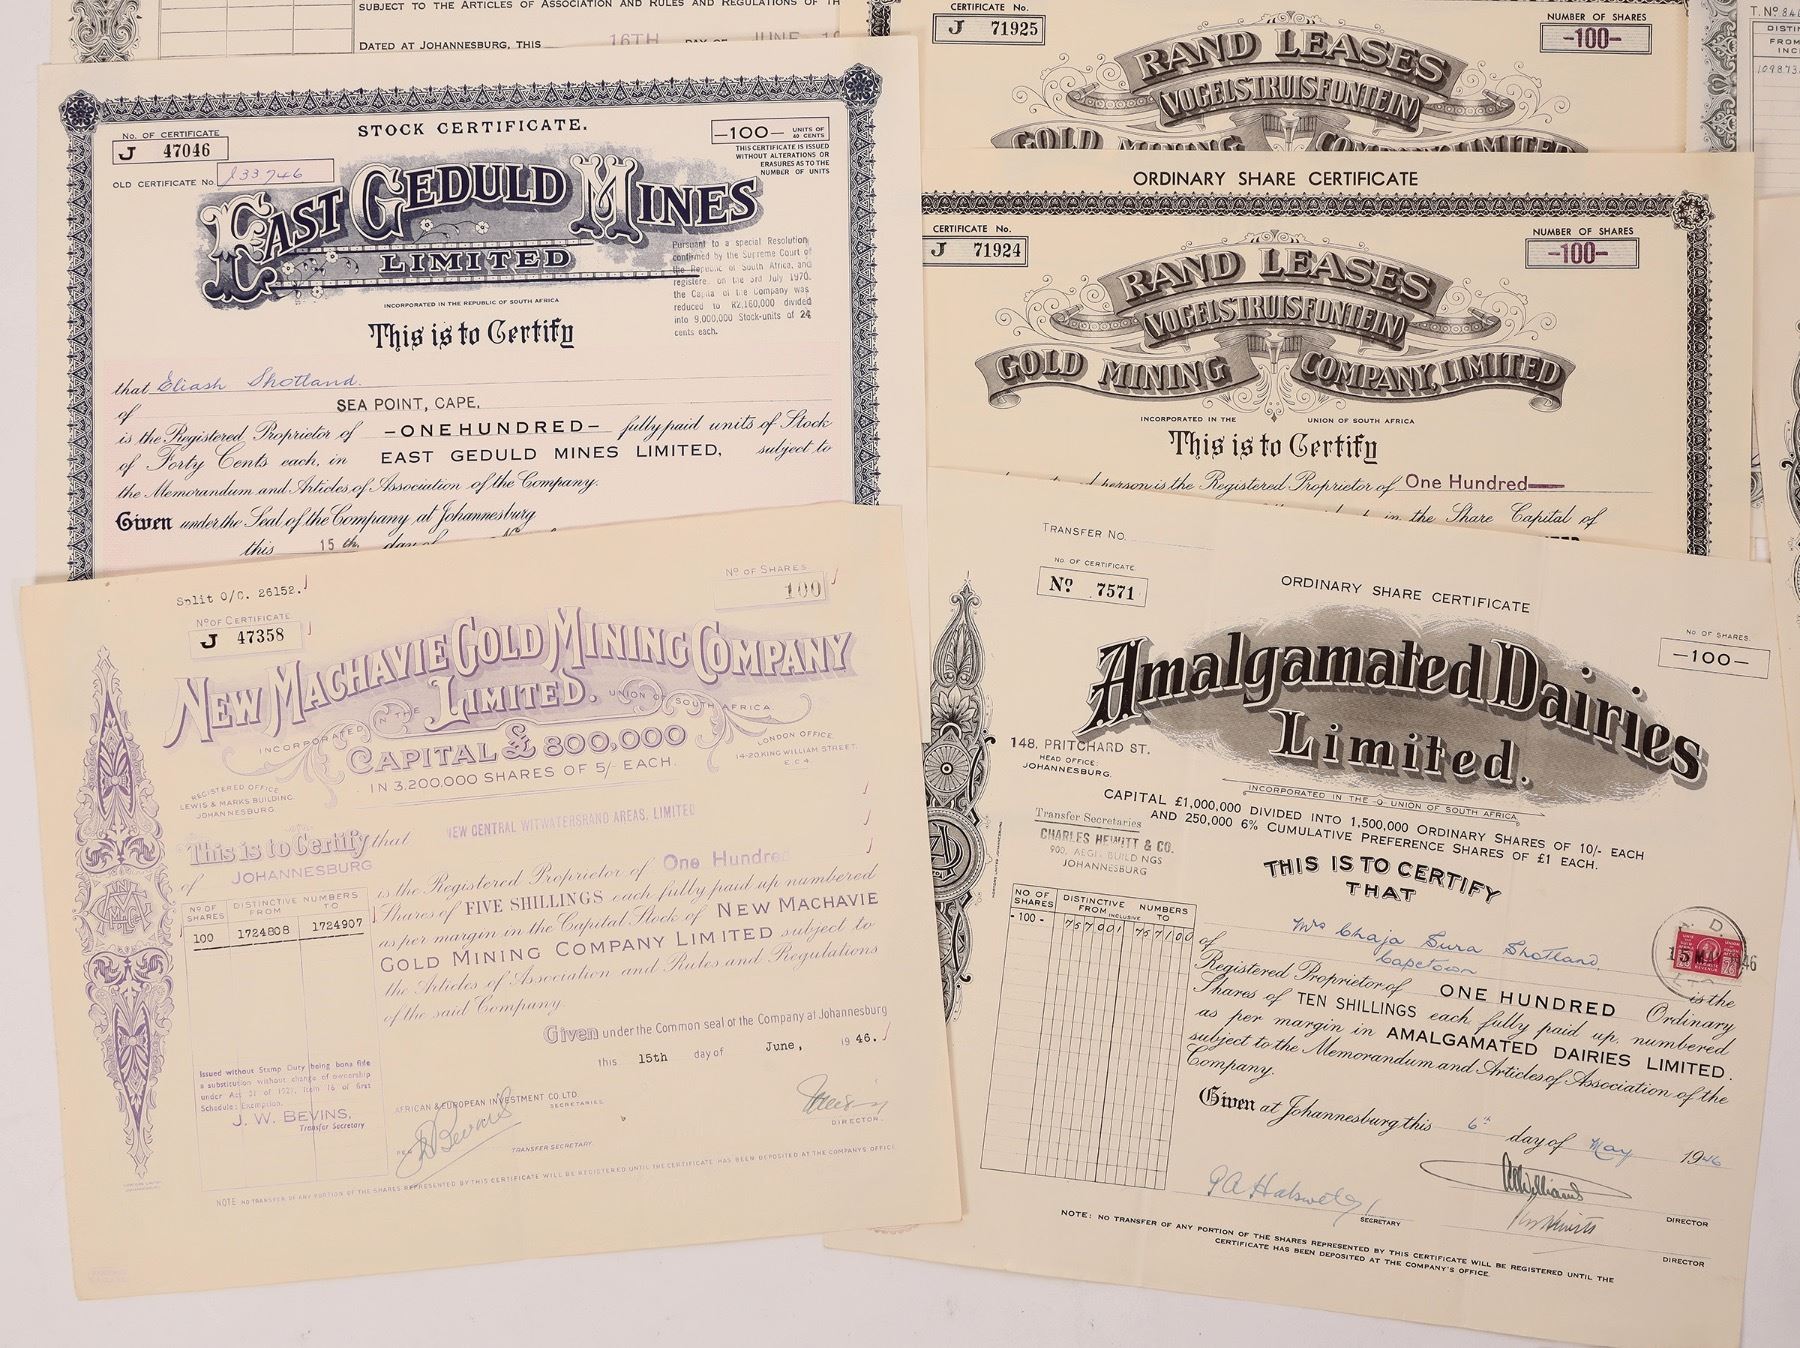 SUBJECT TO THE ARTICLES OF ASSOCIATION AND RULES AND REGULATIONS OF TH
DATED AT JOHANNESBURG, THIS 16TH DAY OF JUNE
No. OF CERTIFICATE
J 47046
OLD CERTIFICATE No. J33746
STOCK CERTIFICATE.
-100- UNITS OF 40 CENTS
THIS CERTIFICATE IS ISSUED
WITHOUT ALTERATIONS OR
ERASURES AS TO THE
NUMBER OF UNITS
EAST GEDULD MINES
LIMITED
Pursuant to a special Resolution
confirmed by the Supreme Court of
the Republic of South Africa, and
registered on the 3rd July 1970,
the Capital of the Company was
reduced to R2,160,000 divided
into 9,000,000 Stock-units of 24
cents each.
INCORPORATED IN THE REPUBLIC OF SOUTH AFRICA
This is to Certify
that Eliash Shotland.
of SEA POINT, CAPE.
is the Registered Proprietor of -ONE HUNDRED- fully paid units of Stock
of Forty Cents each, in EAST GEDULD MINES LIMITED, subject to
the Memorandum and Articles of Association of the Company.
Given under the Seal of the Company at Johannesburg
this 15 th. day of
CERTIFICATE No.
J 71925
NUMBER OF SHARES
-100-
RAND LEASES
(VOGELSTRUISFONTEIN)
GOLD MINING COMPANY, LIMITED
T. No 846
DISTIN
FROM
INC
109873
ORDINARY SHARE CERTIFICATE
CERTIFICATE No.
J 71924
NUMBER OF SHARES
-100-
RAND LEASES
(VOGELSTRUISFONTEIN)
GOLD MINING COMPANY, LIMITED
INCORPORATED IN THE UNION OF SOUTH AFRICA
This is to Certify
person is the Registered Proprietor of One Hundred
in the Share Capital of
Split O/C. 26152.
No OF CERTIFICATE
J 47358
No OF SHARES
100
NEW MACHAVIE GOLD MINING COMPANY
LIMITED.
INCORPORATED IN THE UNION OF SOUTH AFRICA
CAPITAL £800,000
IN 3,200,000 SHARES OF 5/- EACH.
REGISTERED OFFICE
LEWIS & MARKS BUILDING
JOHANNESBURG
LONDON OFFICE
14-20, KING WILLIAM STREET.
E.C.4.
This is to Certify that NEW CENTRAL WITWATERSRAND AREAS, LIMITED
of JOHANNESBURG
is the Registered Proprietor of One Hundred
Shares of FIVE SHILLINGS each fully paid up numbered
as per margin in the Capital Stock of NEW MACHAVIE
GOLD MINING COMPANY LIMITED subject to
the Articles of Association and Rules and Regulations
of the said Company.
No OF SHARES
DISTINCTIVE NUMBERS
FROM TO
100 1724808 1724907
Given under the Common seal of the Company at Johannesburg
this 15th day of June, 1946.
Issued without Stamp Duty being bona fide
a substitution without change of ownership
under Act 31 of 1927, Item 16 of first
Schedule: Exemption.
J. W. BEVINS,
Transfer Secretary
AFRICAN & EUROPEAN INVESTMENT CO. LTD.
SECRETARIES.
PER
TRANSFER SECRETARY.
DIRECTOR.
NOTE NO TRANSFER OF ANY PORTION OF THE SHARES REPRESENTED BY THIS CERTIFICATE WILL BE REGISTERED UNTIL THE CERTIFICATE HAS BEEN DEPOSITED AT THE COMPANY'S OFFICE
TRANSFER No.
No OF CERTIFICATE
No 7571
ORDINARY SHARE CERTIFICATE
No OF SHARES.
-100-
Amalgamated Dairies
Limited.
INCORPORATED IN THE UNION OF SOUTH AFRICA
148, PRITCHARD ST.
HEAD OFFICE:
JOHANNESBURG.
CAPITAL £1,000,000 DIVIDED INTO 1,500,000 ORDINARY SHARES OF 10/- EACH
AND 250,000 6% CUMULATIVE PREFERENCE SHARES OF £1 EACH.
Transfer Secretaries
CHARLES HEWITT & CO.
900, AEGIS BUILDINGS
JOHANNESBURG
THIS IS TO CERTIFY
THAT
NO OF SHARES
DISTINCTIVE NUMBERS
FROM INCLUSIVE TO
-100- 757001 757100
Mrs Chaja Sura Shotland,
of Capetown is the
Registered Proprietor of ONE HUNDRED Ordinary
Shares of TEN SHILLINGS each fully paid up, numbered
as per margin in AMALGAMATED DAIRIES LIMITED.
subject to the Memorandum and Articles of Association of the
Company.
Given at Johannesburg this 6th day of May 1946
SECRETARY
DIRECTOR
DIRECTOR
NOTE: NO TRANSFER OF ANY PORTION OF THE SHARES REPRESENTED BY THIS CERTIFICATE WILL BE REGISTERED UNTIL THE
CERTIFICATE HAS BEEN DEPOSITED AT THE COMPANY'S OFFICE.